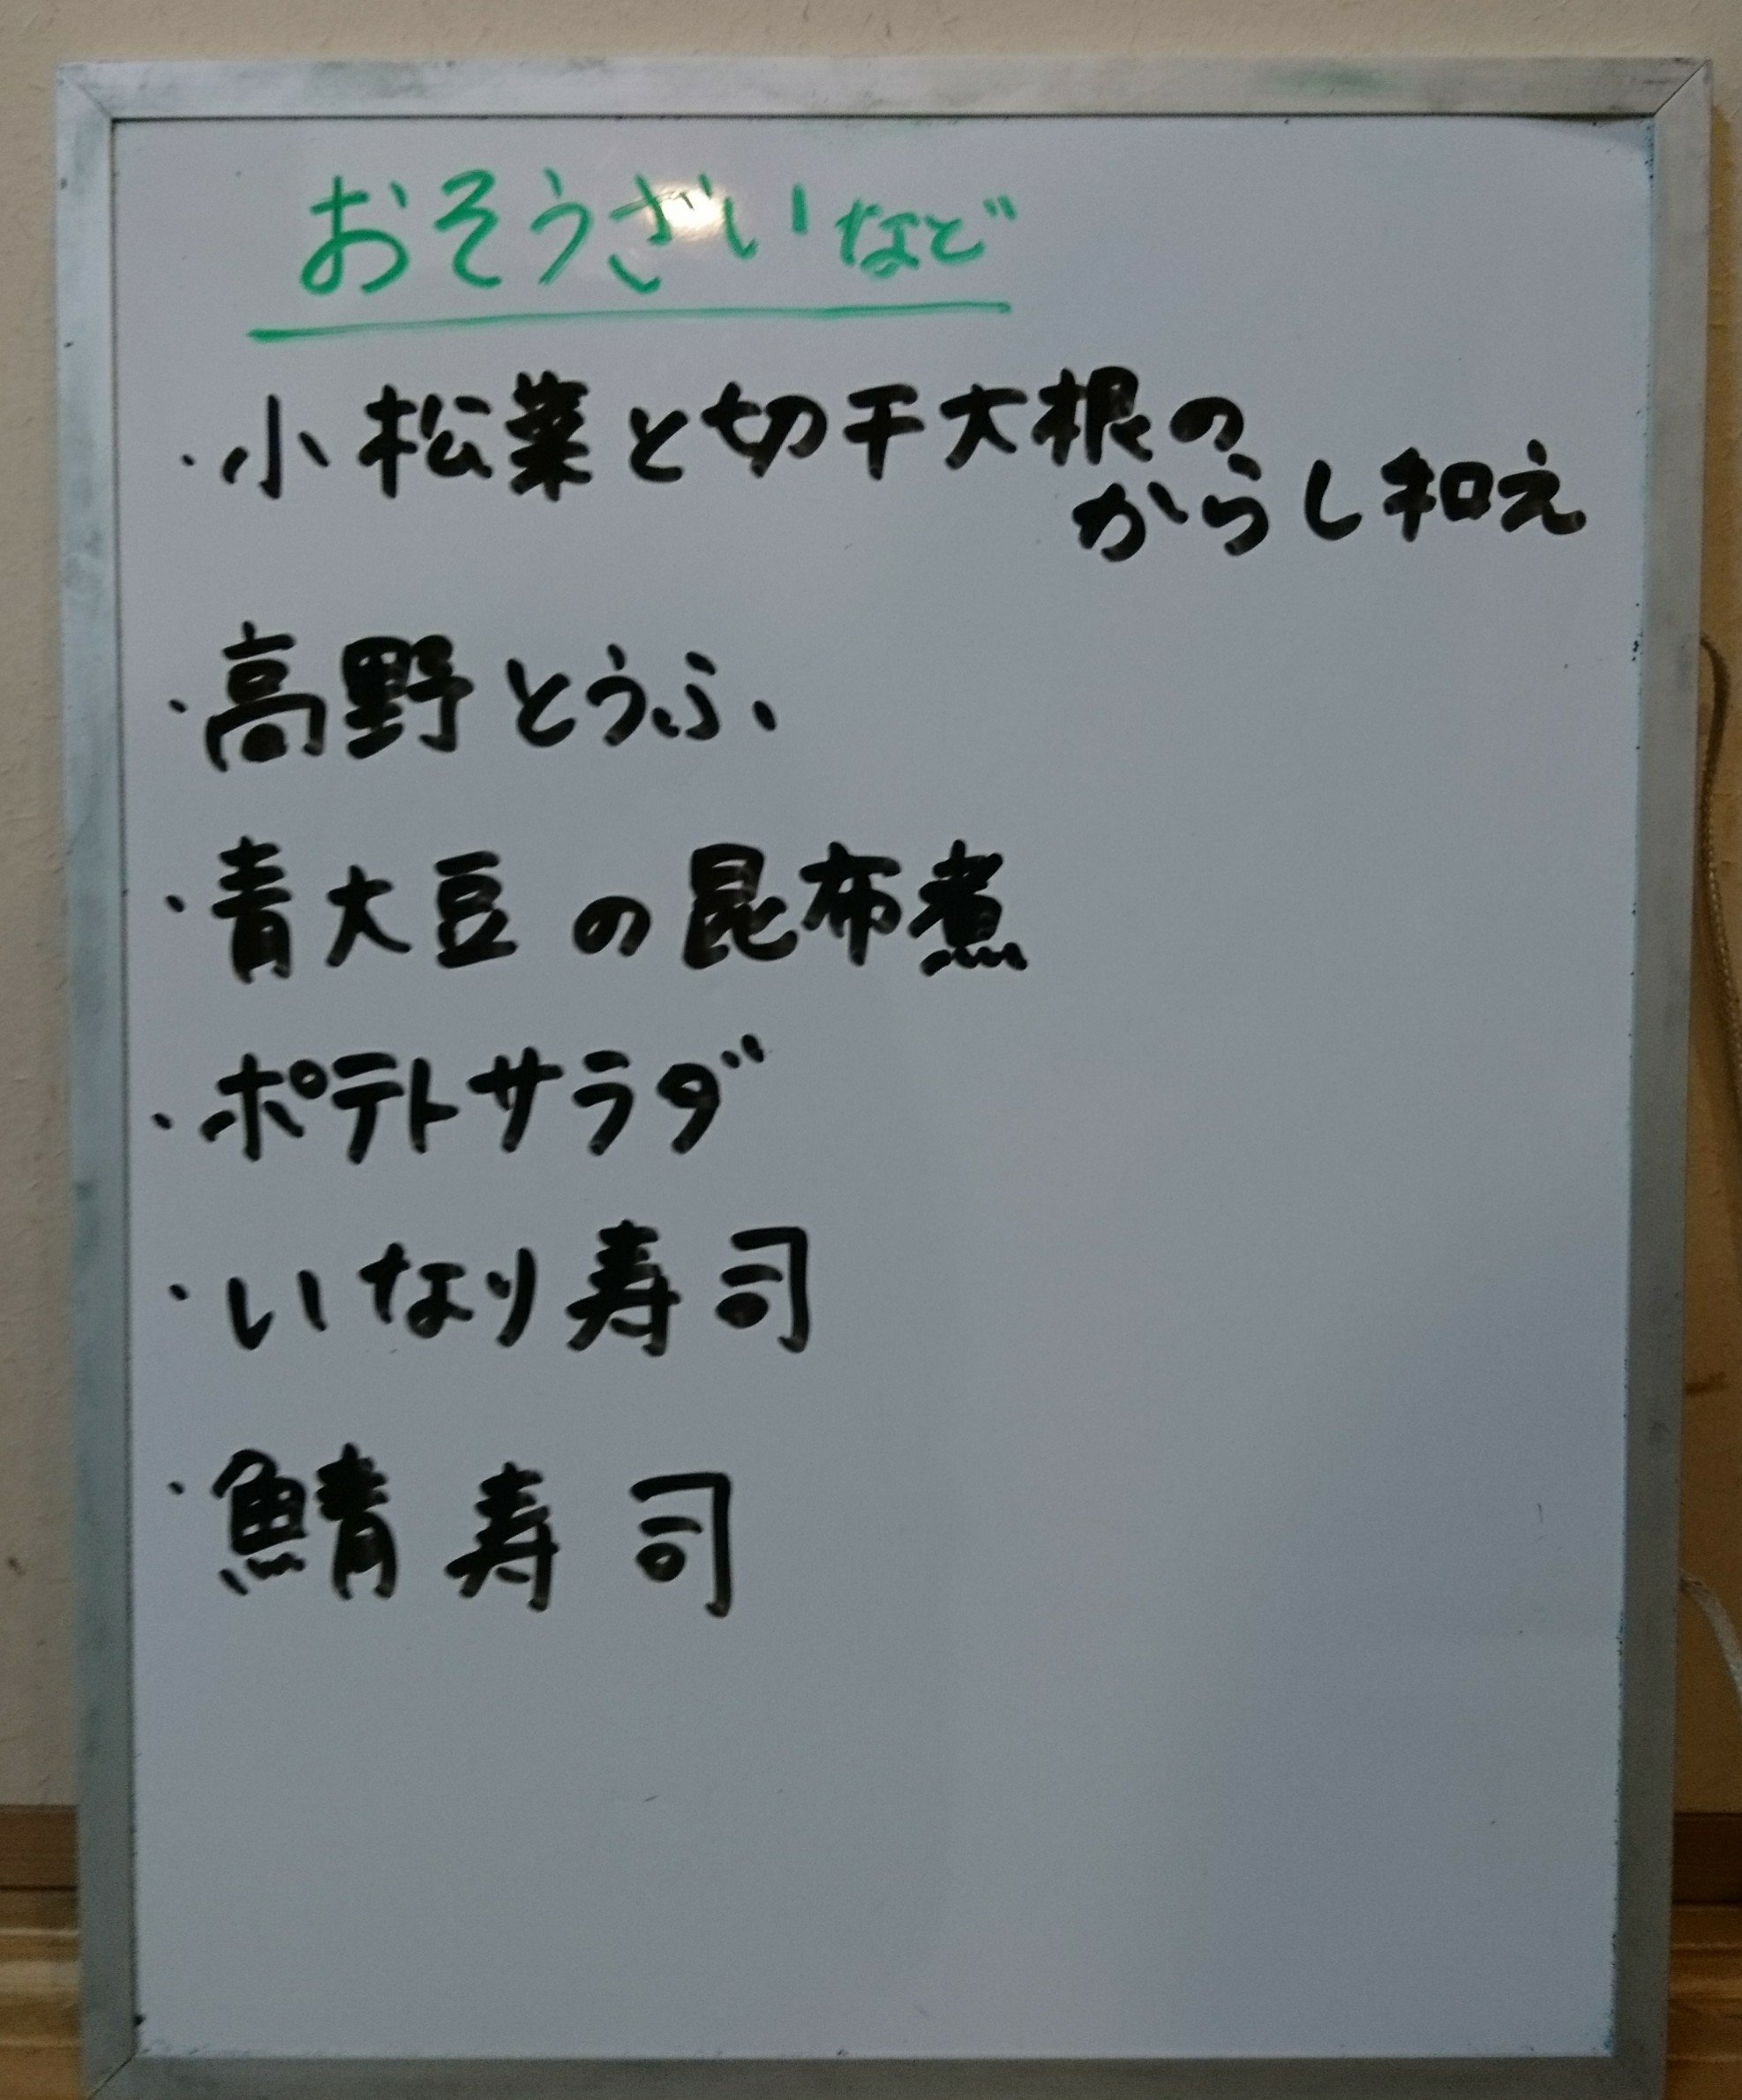 おそうざいなど
・小松菜と切干大根の
からし和え
・高野とうふ
・青大豆の昆布煮
・ポテトサラダ
・いなり寿司
・鯖寿司